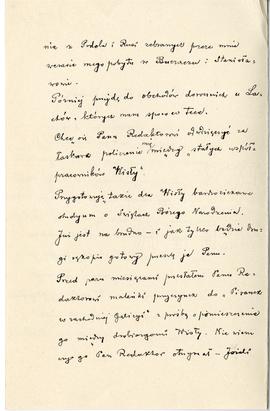 nie z Podola i Rusi zebranych przeze mnie
w czasie mego pobytu w Buczaczu i Stanisła-
wowie.
Później przyjdę do obchodów dorocznych u La-
chów, których mam sporo w tece.
Chcę się Panu Redaktorowi odwdzięczyć za
łaskawe policzenie mię między "stałych współ-
pracowników Wisły".
Przygotowuję także dla Wisły bardzo ciekawe
studyum o Świętach Bożego Narodzenia.
Już jest na brudno – i jak tylko będzie dru-
gi rękopis gotowy prześlę ja Panu.
Przed paru miesiącami przesłałem Panu Re-
daktorowi maleńki przyczynek do "Pisanek
w zachodniej Galicyi" z prośbą o pomieszczenie
go między drobiazgami Wisły. Nie wiem
czy go Pan Redaktor otrzymał – Jeżeli